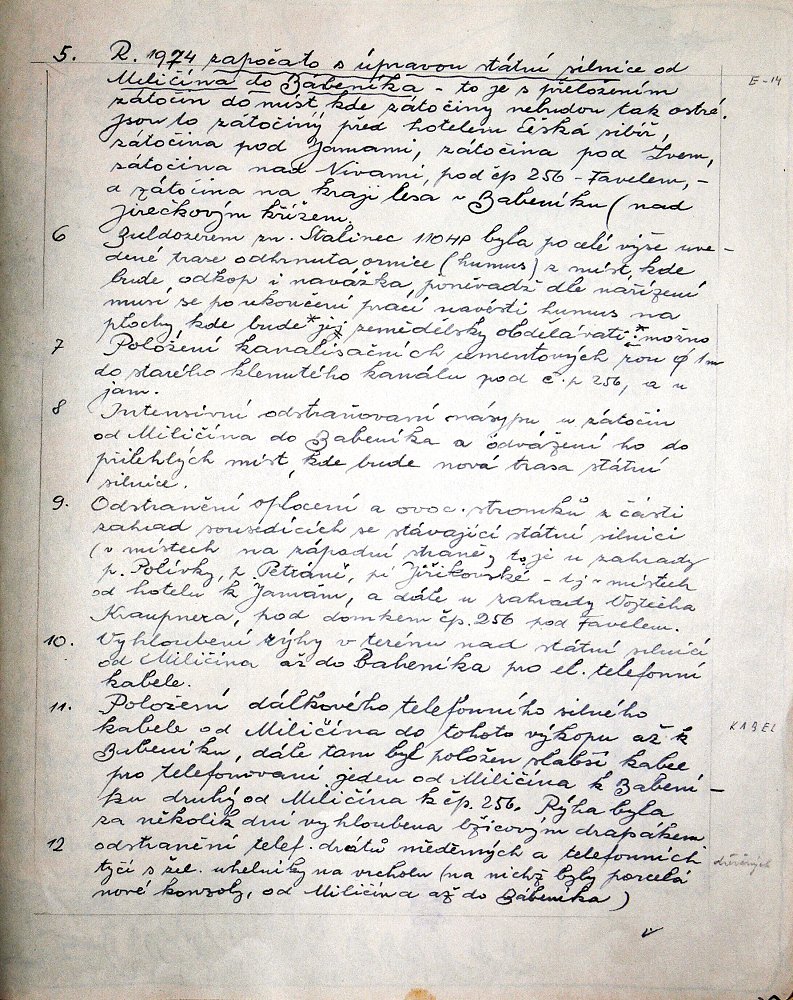 5. R. 1974 započato s úpravou státní silnice od
Miličína do Bábeníka - to je s přeložením
zátočin do míst, kde zátočiny nebudou tak ostré.
E-14
Jsou to zátočiny před hotelem Česká sibiř,
zátočina pod Jamami, zátočina pod Lvem,
zátočina nad Nivami, pod čp 256 - Favelem, -
a zátočina na kraji lesa v Babeníku (nad
Jirečkovým křížem.
6 Buldozerem zn. Stalinec 110 HP byla po celé výše uve-
dené trase odhrnuta ornice (humus) z míst, kde
bude odkop i navážka, poněvadž dle nařízení
musí se po ukončení prací navésti humus na
plochy, kde bude * jej zemědělsky obdělávati. * možno
7 Položení kanalisačních cementových rour φ 1m
do starého klenutého kanálu pod č.p 256, a u
jam.
8 Intensivní odstraňovaní násypu u zátočin
od Miličína do Babeníka a odvážení ho do
přilehlých míst, kde bude nová trasa státní
silnice.
9. Odstranění oplocení a ovoc. stromků z části
zahrad sousedících se stávající státní silnicí
(v místech na západní straně, to je u zahrady
p. Polívky, p. Petráně, pí Jiřikovské - tj. v místech
od hotelu k Jamám, a dále u zahrady Vojtěcha
Kraupnera, pod domkem čp. 256 pod Favelem.
10. Vyhloubení rýhy v terénu nad státní silnicí
od Miličína až do Babeníka pro el. telefonní
kabele.
11. Položení dálkového telefonního silného
kabele od Miličína do tohoto výkopu až k
KABEL
Bubeníku, dále tam byl položen slabší kabel
pro telefonovaní jeden od Miličína k Babení-
ku druhý od Miličína k čp. 256. Rýha byla
za několik dní vyhloubena lžicovým drapákem
12 odstranění telef. drátů měděných a telefonních
dřevěných
tyčí s žel. uhelníky na vrcholu (na nichž byly porcelá
nové konzoly, od Miličína až do Bábeníka)